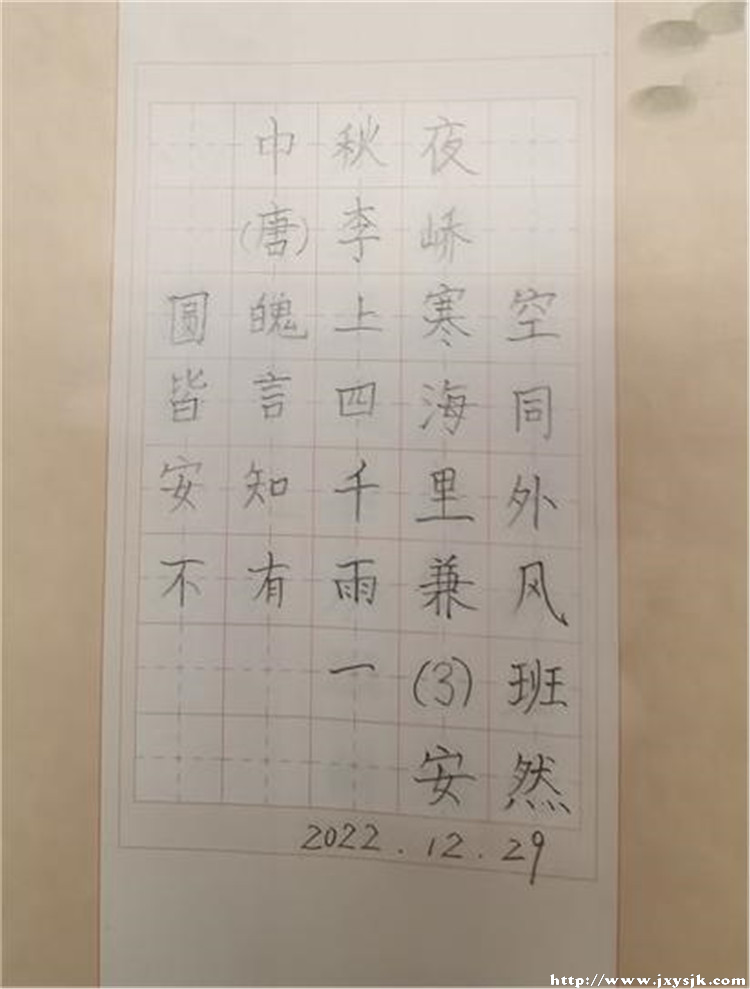 中秋夜
(唐)李峤
圆魄上寒空
皆言四海同
安知千里外
不有雨兼风
一(3)班
安然
2022.12.29
http://www.jxysjk.com